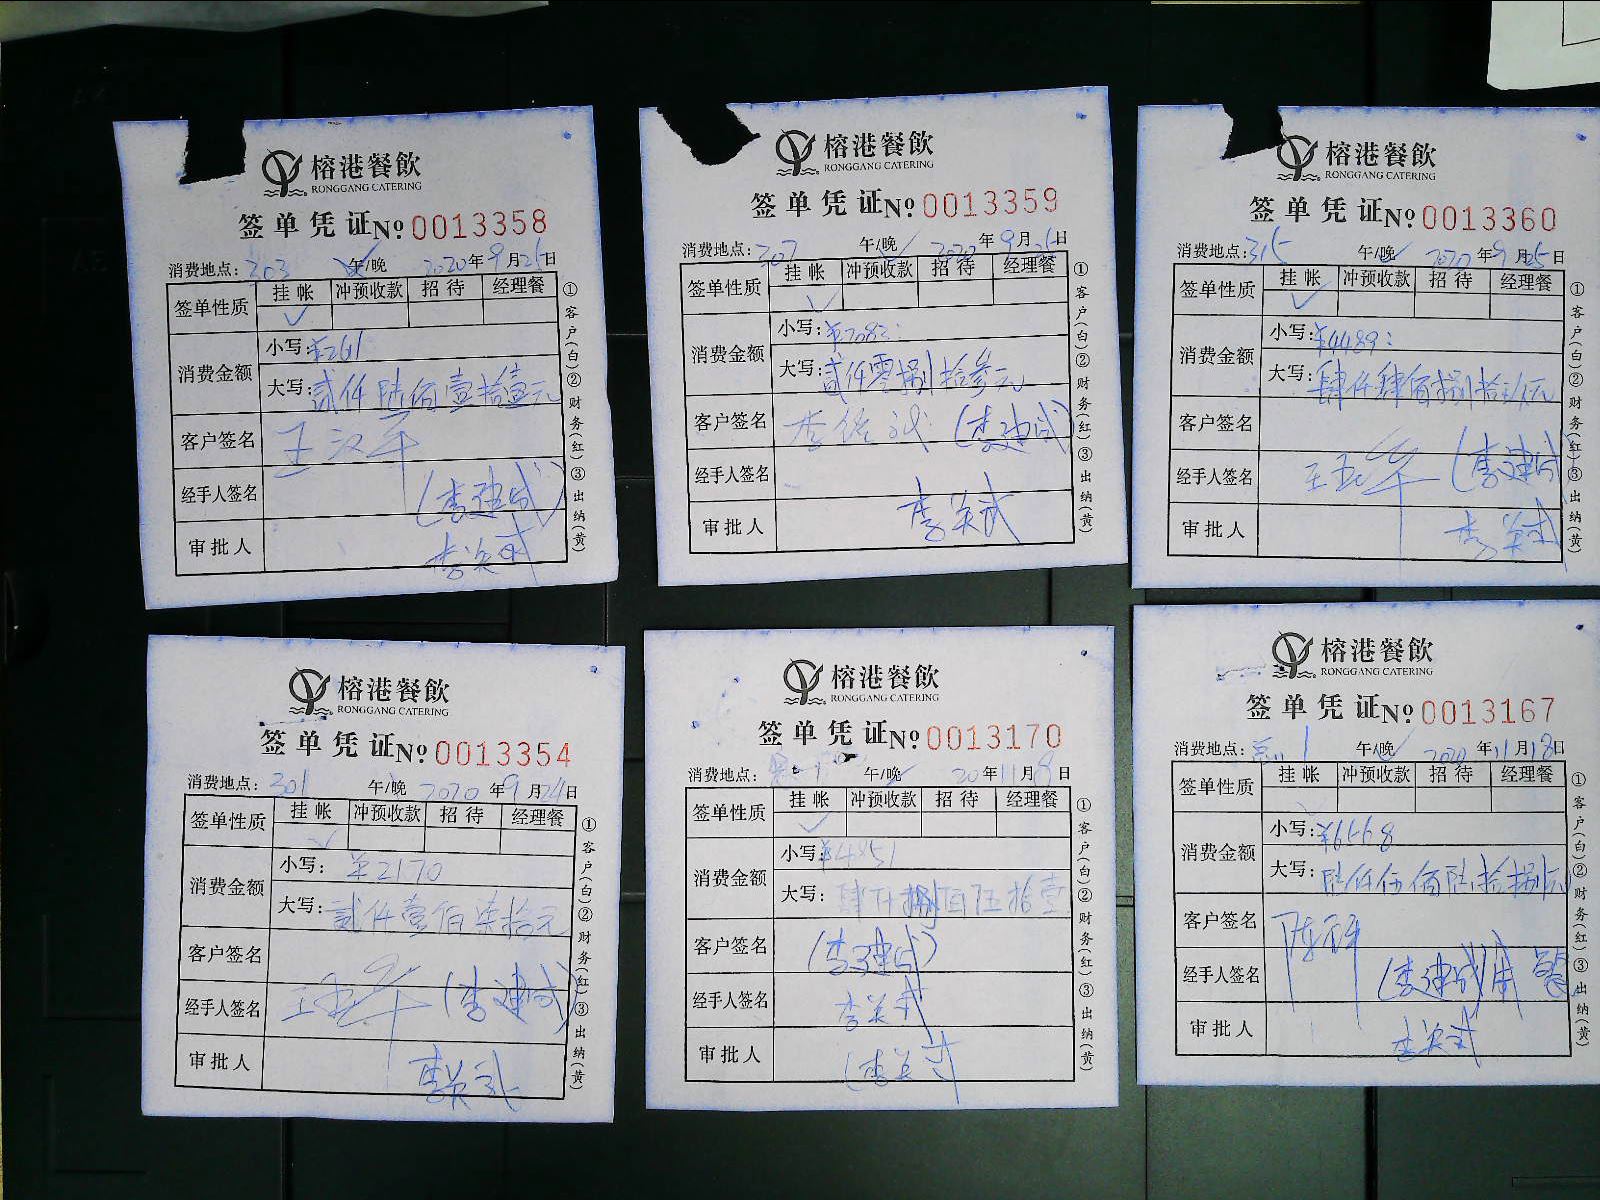 榕港餐飲
RONGGANG CATERING
签单凭证№ 0013358
消费地点: 203 午/晚 2020年9月25日
签单性质 挂帐 冲预收款 招待 经理餐
消费金额 小写:
大写: 贰仟陆佰壹拾壹元
客户签名 王汉军
经手人签名 (李建成)
审批人 李英武
①客户(白)②财务(红)③出纳(黄)
榕港餐飲
RONGGANG CATERING
签单凭证№ 0013359
消费地点: 207 午/晚 2020年9月25日
签单性质 挂帐 冲预收款 招待 经理餐
消费金额 小写: ¥2083:
大写: 贰仟零捌拾叁元
客户签名 (李建成)
经手人签名
审批人 李英武
①客户(白)②财务(红)③出纳(黄)
榕港餐飲
RONGGANG CATERING
签单凭证№ 0013360
消费地点: 315 午/晚 2020年9月25日
签单性质 挂帐 冲预收款 招待 经理餐
消费金额 小写: ¥4489:
大写: 肆仟肆佰捌拾玖元
客户签名
经手人签名 (李建成
审批人 李英武
①客户(白)②财务(红)③出纳(黄)
榕港餐飲
RONGGANG CATERING
签单凭证№ 0013354
消费地点: 301 午/晚 2020年9月24日
签单性质 挂帐 冲预收款 招待 经理餐
消费金额 小写: ¥2170
大写: 贰仟壹佰柒拾元
客户签名
经手人签名 (李建成)
审批人 李英武
①客户(白)②财务(红)③出纳(黄)
榕港餐飲
RONGGANG CATERING
签单凭证№ 0013170
消费地点: 午/晚 20年11月8日
签单性质 挂帐 冲预收款 招待 经理餐
消费金额 小写: ¥4851
大写: 肆仟捌佰伍拾壹
客户签名 (李建成)
经手人签名 李英武
审批人 (李英武
①客户(白)②财务(红)③出纳(黄)
榕港餐飲
RONGGANG CATERING
签单凭证№ 0013167
消费地点: 午/晚 2020年11月18日
签单性质 挂帐 冲预收款 招待 经理餐
消费金额 小写: ¥6568
大写: 陆仟伍佰陆拾捌元
客户签名
经手人签名 (李建成)用餐
审批人 李英武
①客户(白)②财务(红)③出纳(黄)